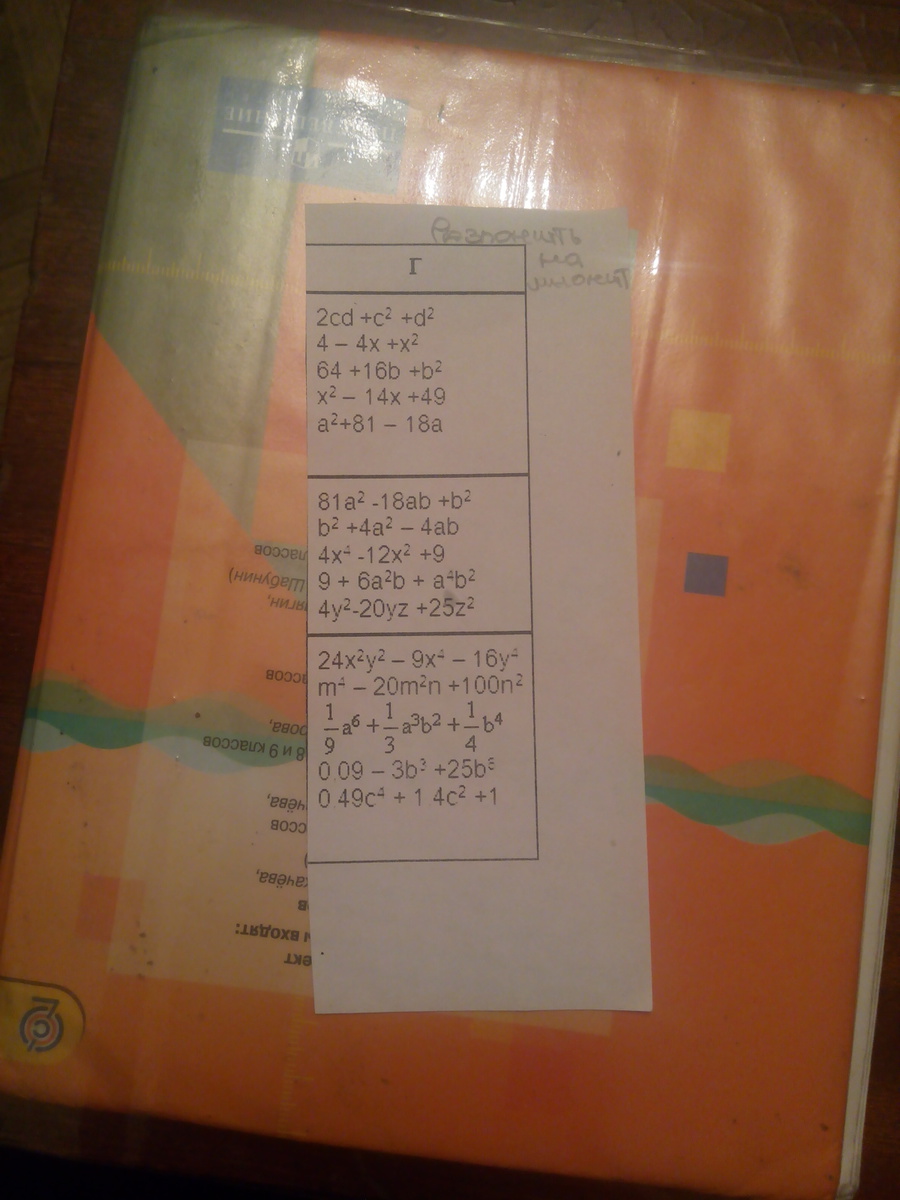 Разложить
на
множит
Г
2cd +c² +d²
4 – 4x +x²
64 +16b +b²
x² – 14x +49
a²+81 – 18a
81a² -18ab +b²
b² +4a² – 4ab
4x⁴ -12x² +9
9 + 6a²b + a⁴b²
4y²-20yz +25z²
24x²y² – 9x⁴ – 16y⁴
m⁴ – 20m²n +100n²
1/9 a⁶ + 1/3 a³b² + 1/4 b⁴
0 09 – 3b³ +25b⁶
0 49c⁴ + 1 4c² +1
лассов
Шабунин)
ягин,
ассов
рова,
8 и 9 классов
чёва,
ссов
)
качёва,
в
и входят:
ект